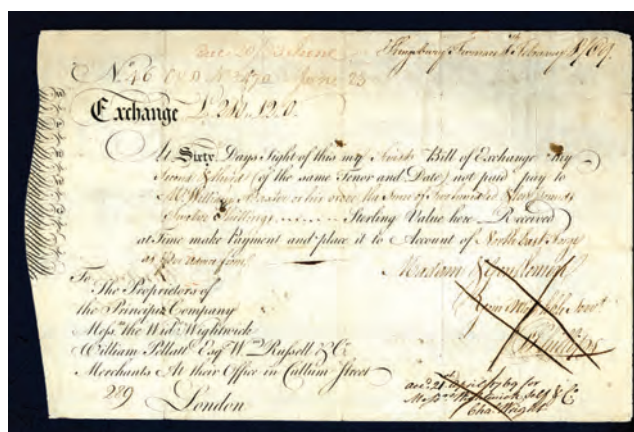 Kingsbury Furnace February 1769.
No. 46 June 23
Exchange £ 210.. 12.. 0.
At Sixty Days Sight of this my First Bill of Exchange my
Second & third (of the same Tenor and Date) not paid pay to
Mr. William or his order the Sum of Two hundred & Ten pounds
Twelve Shillings ........ Sterling Value here Received
at Time make Payment and place it to Account of North East Forge
as from
Madam & Gentlemen
To
The Proprietors of
the Principio Company
Messrs. the Wid: Wightwick
William Pellatt Esqr. Wm. Russell & Co.
Merchants At their Office in Cullum Street
289 London
accd. 21 April 1769 for
Messrs. Wightwick Self & Co.
Chas. Wright